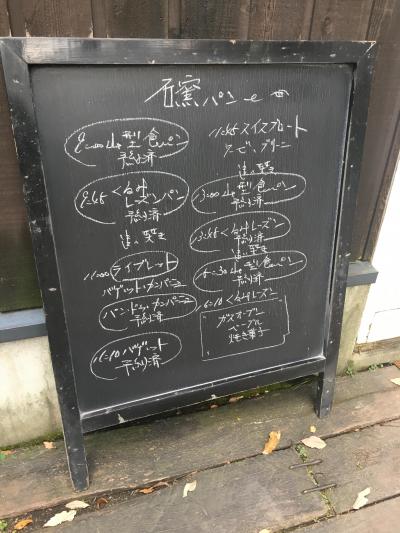 石窯パン
8:00 山型食パン
予約済
9:45 くるみ
レーズンパン
予約済
追い焚き
11:00 ライブレット
バゲット・カンパーニュ
パン・ドゥ・カンパーニュ
予約済
11:10 バゲット
予約済
11:45 スイスブレート
追い焚き
13:00 山型食パン
予約済
13:45 くるみレーズン
予約済
追い焚き
15:30 山型食パン
予約済
16:10 くるみレーズン
ガスオーブン
ベーグル
焼き菓子